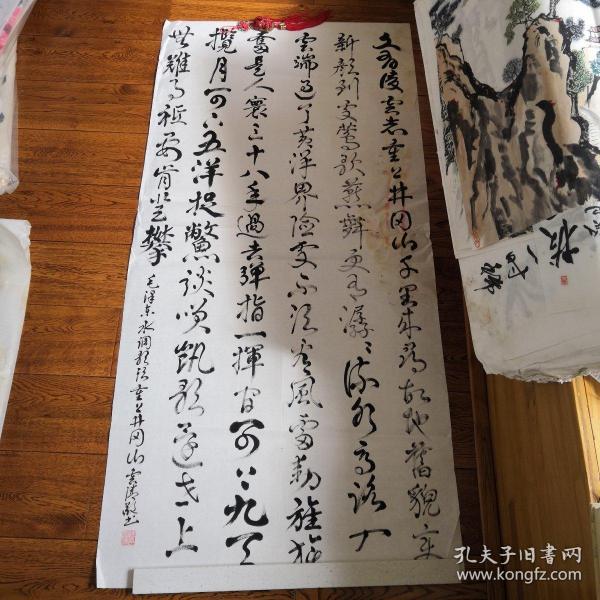 久有凌雲志重上井冈山千里来寻故地舊貌变
新颜到处莺歌燕舞更有潺〻流水高路入
雲端过了黄洋界险处不须看風雷動旌旗
奮是人寰三十八年過去弹指一揮间可上九天
攬月可下五洋捉鳖谈笑凯歌還世上
無難事祗要肯登攀
毛泽东水调歌头重上井冈山
孔夫子旧书网
www.kongfz.com